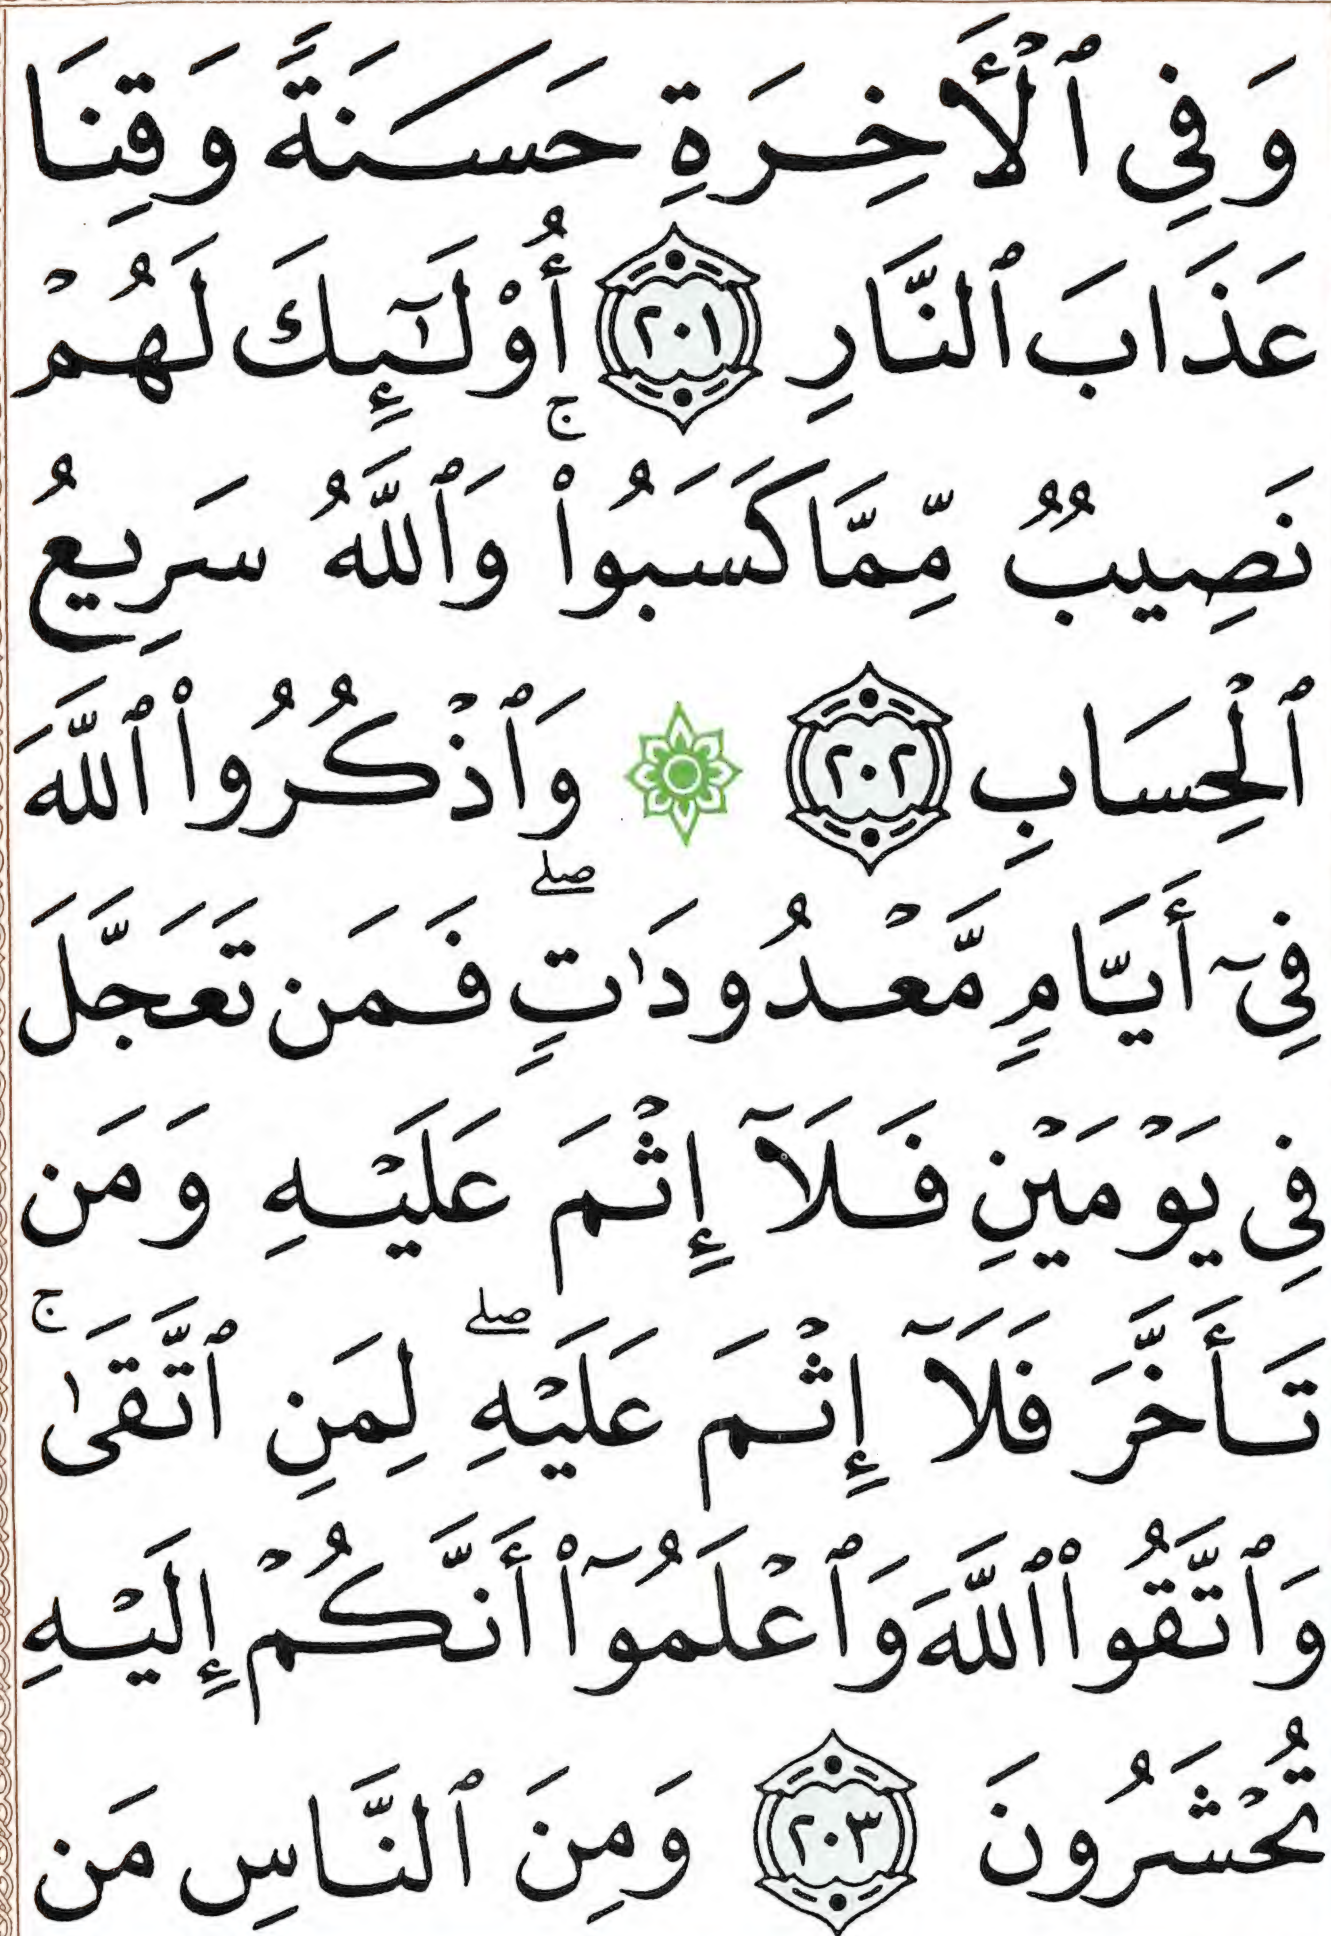 وَفِى ٱلْأَخِرَةِ حَسَنَةً وَقِنَا
عَذَابَ ٱلنَّارِ ٢٠١ أُوْلَٰٓئِكَ لَهُمْ
نَصِيبٌ مِّمَّا كَسَبُوا۟ ۚ وَٱللَّهُ سَرِيعُ
ٱلْحِسَابِ ٢٠٢ وَٱذْكُرُوا۟ ٱللَّهَ
فِىٓ أَيَّامٍ مَّعْدُودَٰتٍ ۖ فَمَن تَعَجَّلَ
فِى يَوْمَيْنِ فَلَآ إِثْمَ عَلَيْهِ وَمَن
تَأَخَّرَ فَلَآ إِثْمَ عَلَيْهِ ۖ لِمَنِ ٱتَّقَىٰ ۚ
وَٱتَّقُوا۟ ٱللَّهَ وَٱعْلَمُوٓا۟ أَنَّكُمْ إِلَيْهِ
تُحْشَرُونَ ٢٠٣ وَمِنَ ٱلنَّاسِ مَن